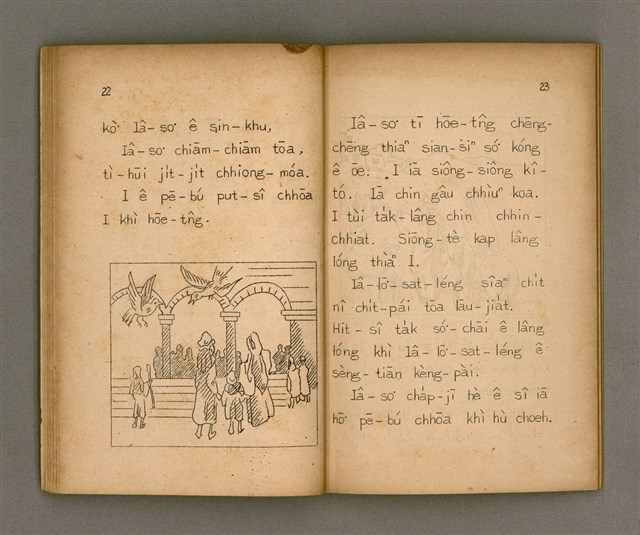 22
kò͘ Iâ-so͘ ê sin-khu,
Iâ-so͘ chiām-chiām tōa,
tì-hūi ji̍t-ji̍t chhiong-móa.
I ê pē-bú put-sî chhōa
I khì hōe-tn̂g.
23
Iâ-so͘ tī hōe-tn̂g chēng-
chēng thiaⁿ sian-siⁿ só͘ kóng
ê ōe. I iā siông-siông kî-
tó. Iā chin gâu chhiùⁿ koa.
I tùi ta̍k-lâng chin chhin-
chhiat. Siōng-tè kap lâng
lóng thiàⁿ I.
Iâ-lō͘-sat-léng sîaⁿ chi̍t
nî chi̍t-pái tōa lāu-jia̍t.
Hit-sî ta̍k só͘-chāi ê lâng
lóng khì Iâ-lō͘-sat-léng ê
sèng-tiān kèng-pài.
Iâ-so͘ cha̍p-jī hè ê sî iā
hō͘ pē-bú chhōa khì hù choeh.